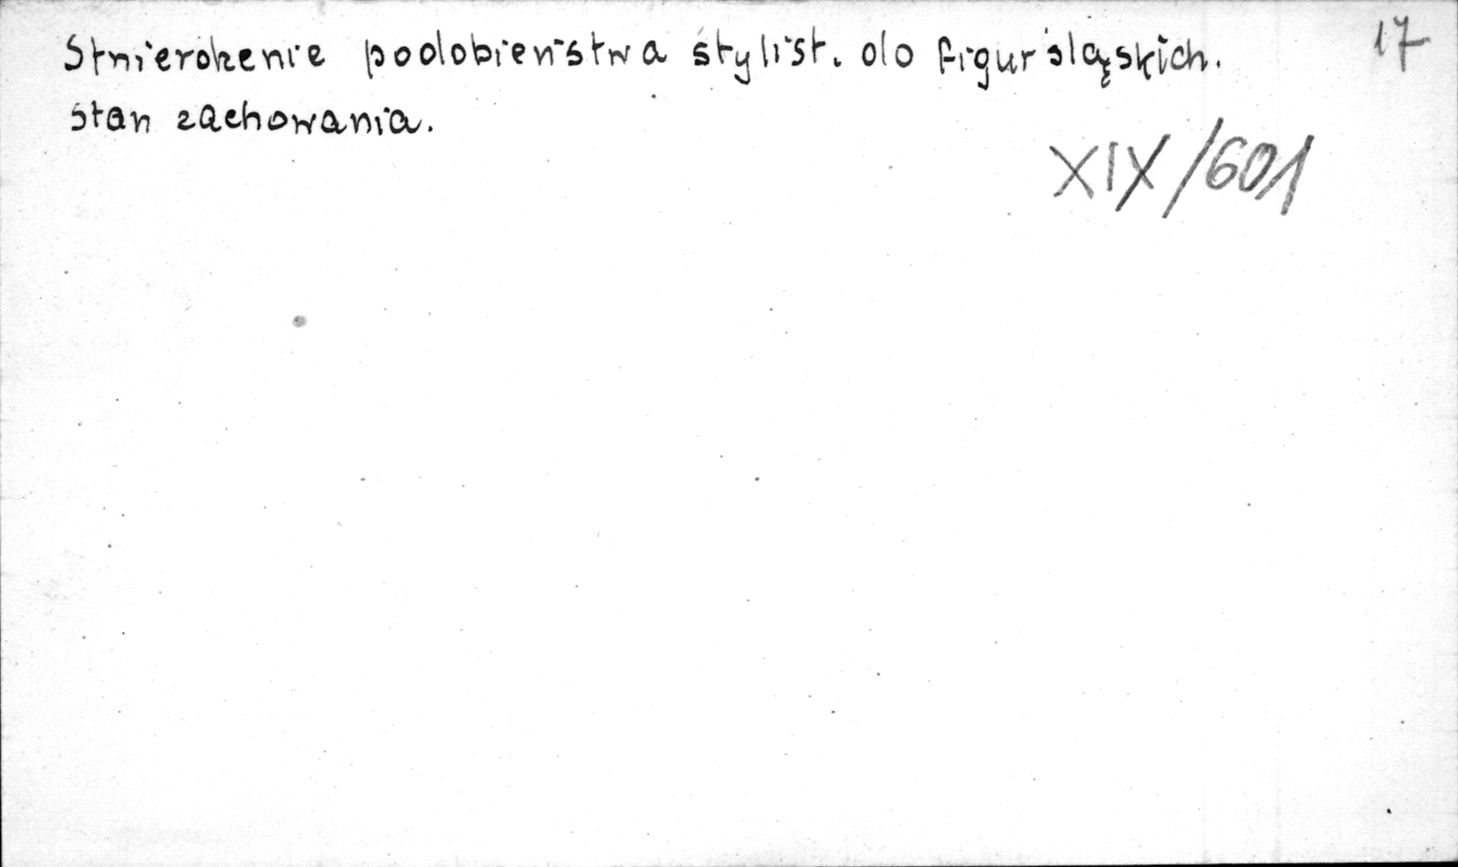 17
Stwierdzenie podobieństwa stylist. do figur śląskich.
Stan zachowania.
XIX/601